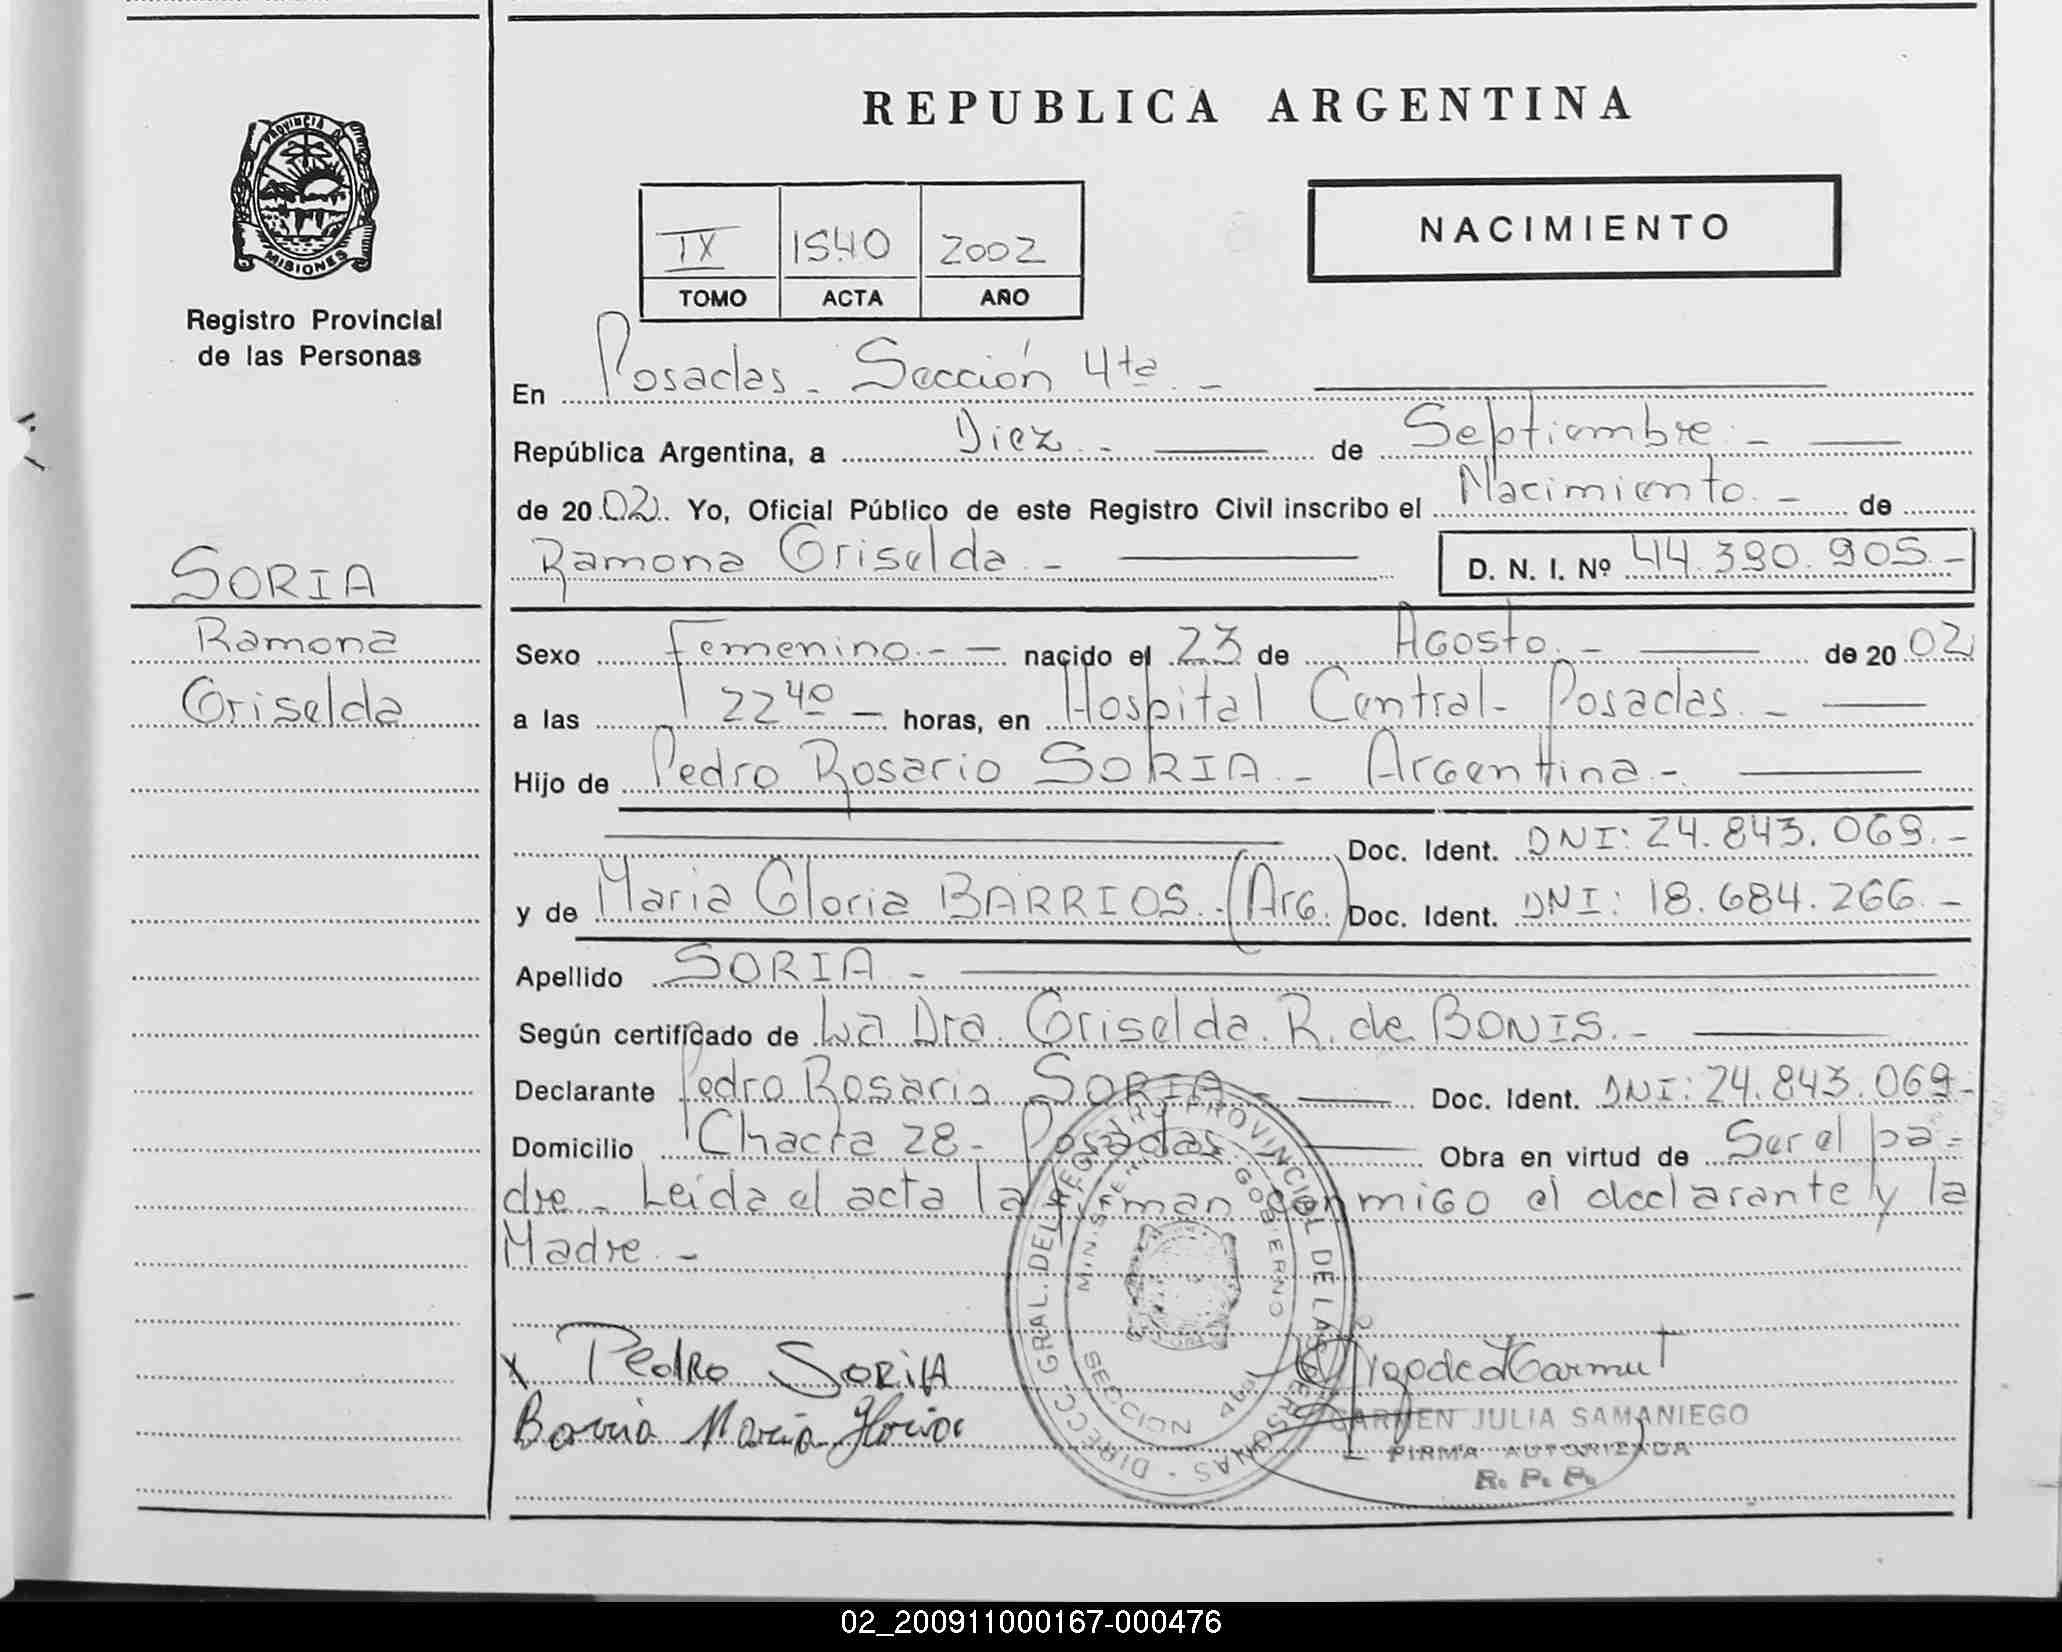 PROVINCIA DE
MISIONES
Registro Provincial
de las Personas
SORIA
Ramona
Griselda
REPUBLICA ARGENTINA
IX 1540 2002
TOMO ACTA AÑO
NACIMIENTO
En Posadas - Sección 4ta. -
República Argentina, a Diez. - de Septiembre. -
de 2002. Yo, Oficial Público de este Registro Civil inscribo el Nacimiento. - de
Ramona Griselda. - D. N. I. Nº 44.390.905.-
Sexo Femenino. - nacido el 23 de Agosto. - de 2002
a las 22 40 - horas, en Hospital Central - Posadas. -
Hijo de Pedro Rosario SORIA. - Argentina. -
Doc. Ident. DNI: 24.843.069. -
y de Maria Gloria BARRIOS. - (Arg.) Doc. Ident. DNI: 18.684.266. -
Apellido SORIA. -
Según certificado de La Dra. Griselda. R. de BONIS. -
Declarante Pedro Rosario SORIA - Doc. Ident. DNI: 24.843.069-
Domicilio Chacra 28 - Posadas. - Obra en virtud de Ser el pa-
dre. - Leída el acta la firman conmigo el declarante y la
Madre. -
x Pedro SORIA
Barrio Maria Gloria
DIRECC. GRAL. DEL REG. PROVINCIAL DE LAS PERSONAS
GOBIERNO
SECCION 4ta
CARMEN JULIA SAMANIEGO
FIRMA AUTORIZADA
R. P. P.
02_200911000167-000476